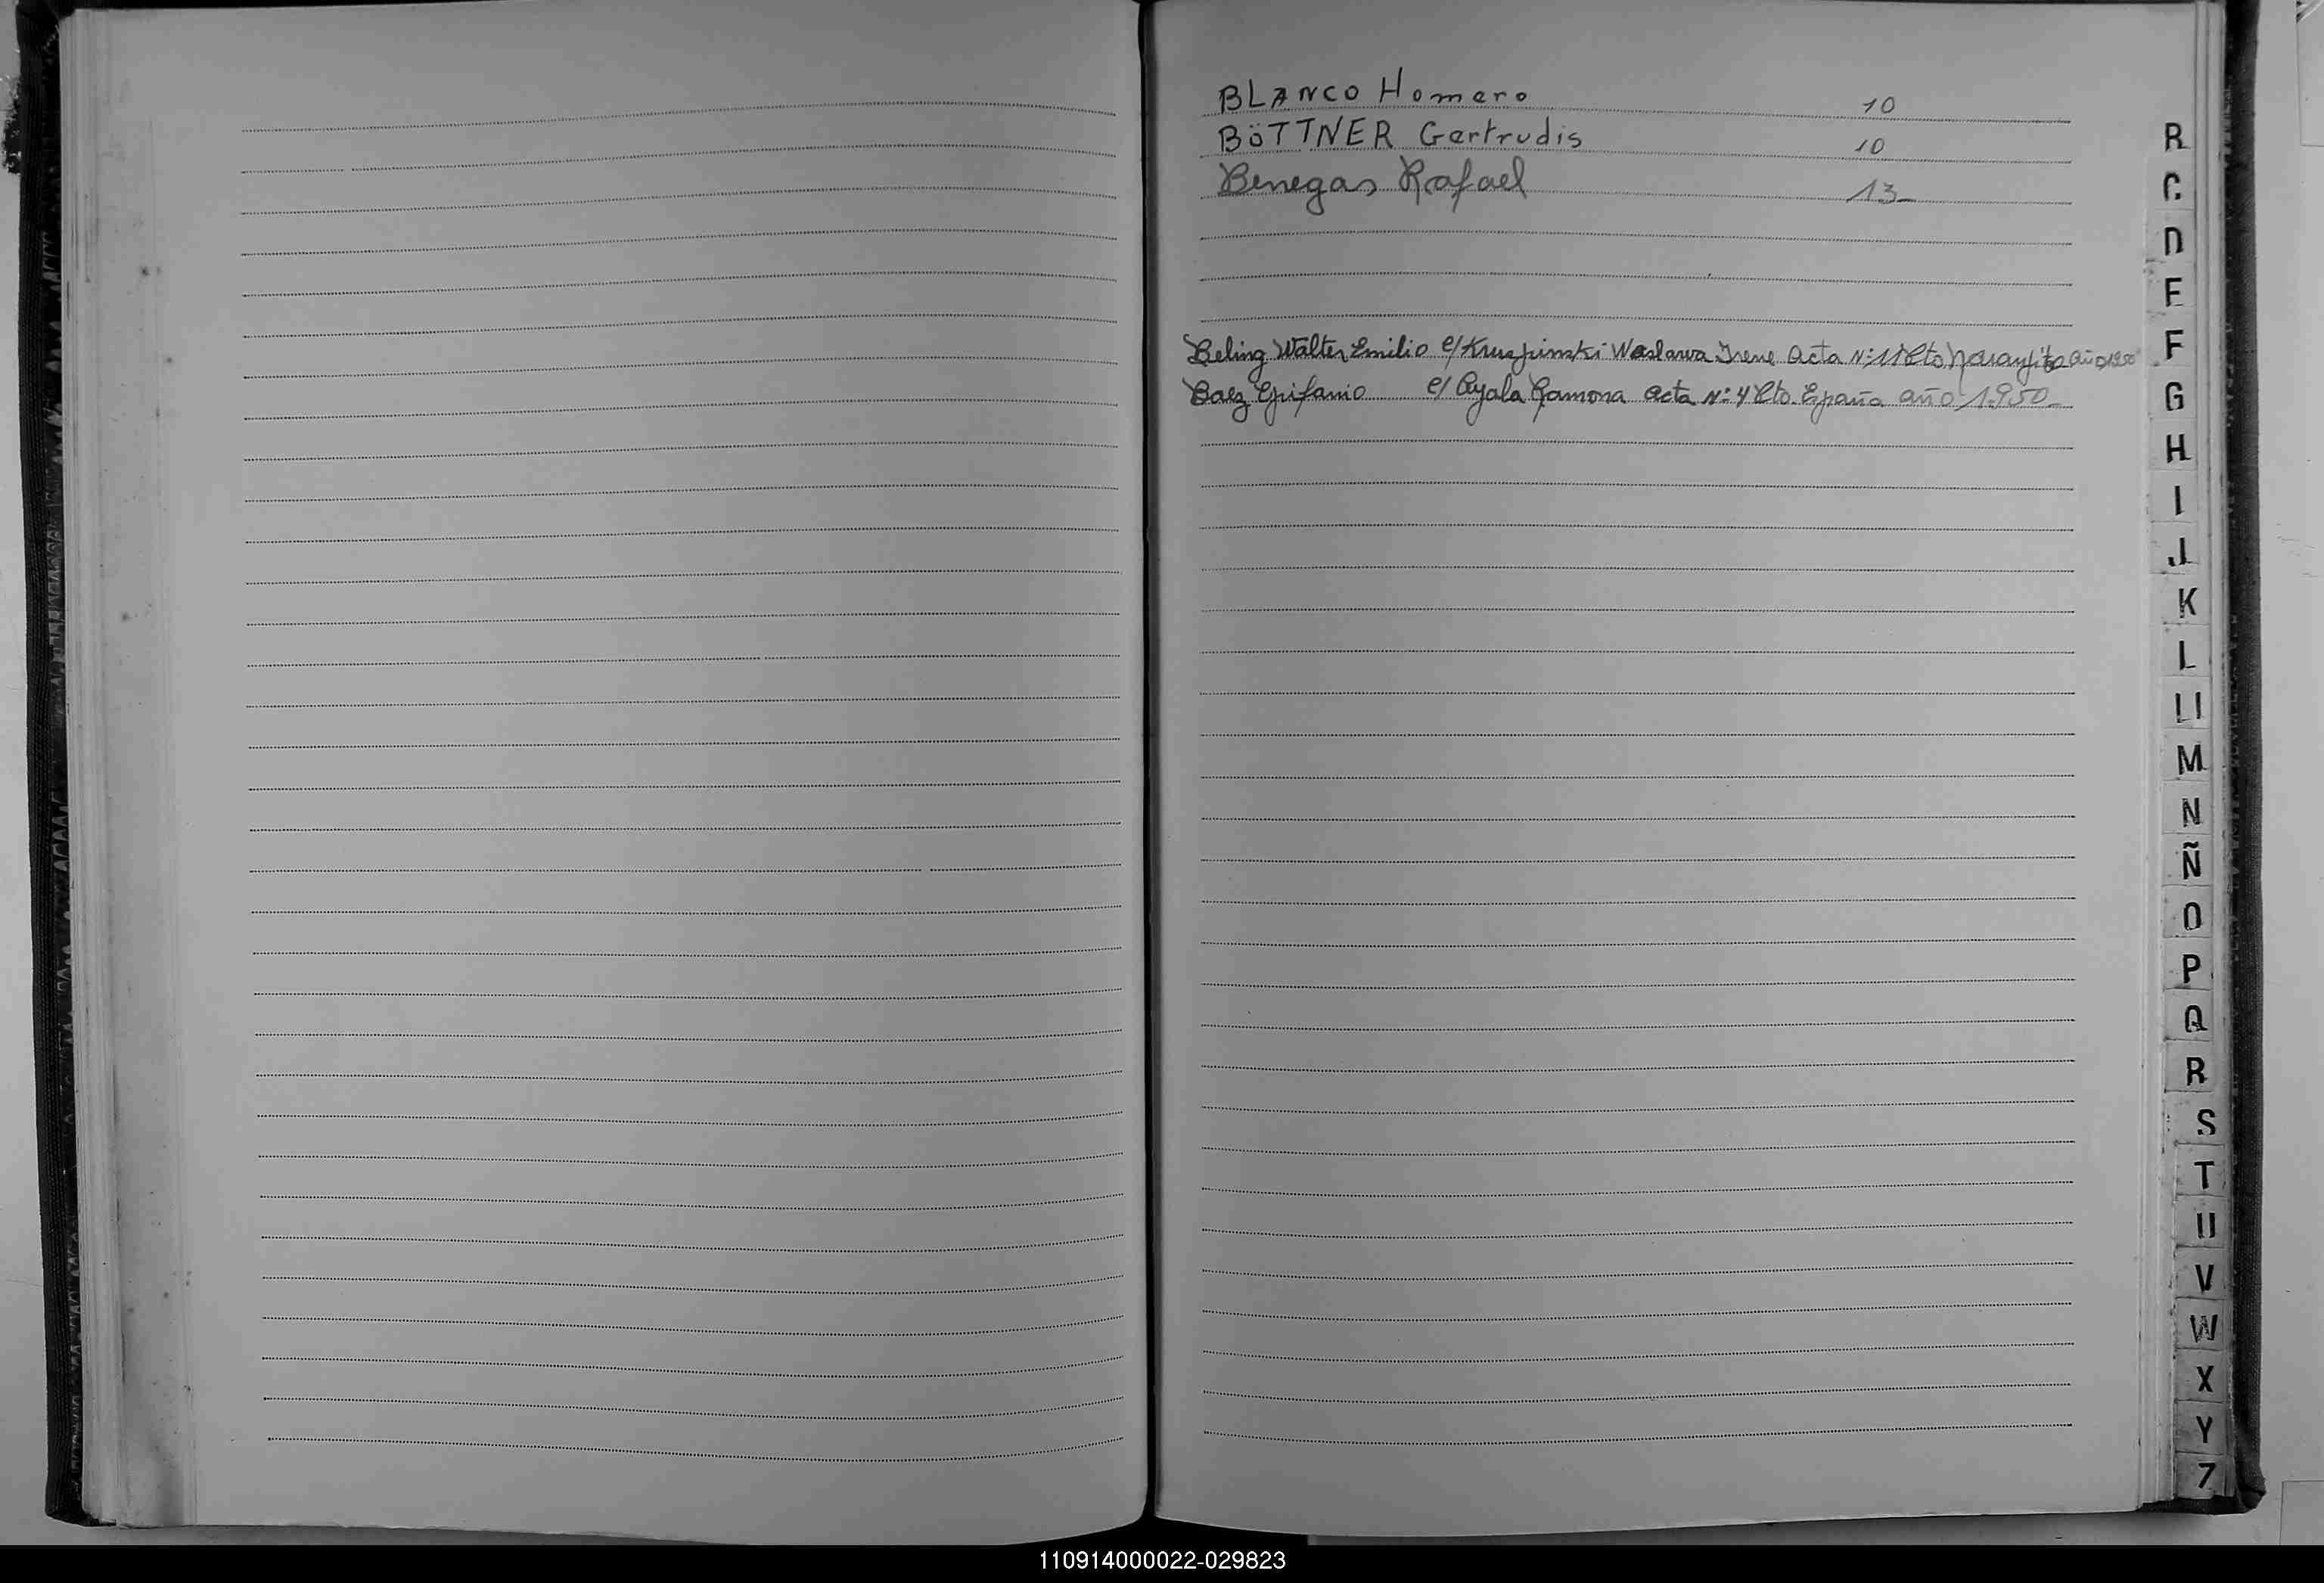 BLANCO Homero 10
BÖTTNER Gertrudis 10
Benegas Rafael 13_
Beling Walter Emilio c/ Kruspinski Waslawa Irene Acta Nº 11 Cto Naranjito año 1950
Baez Epifanio c/ Ayala Ramona Acta Nº 4 Cto. España año 1.950_
R
C
D
E
F
G
H
I
J
K
L
Ll
M
N
Ñ
O
P
Q
R
S
T
U
V
W
X
Y
Z
110914000022-029823